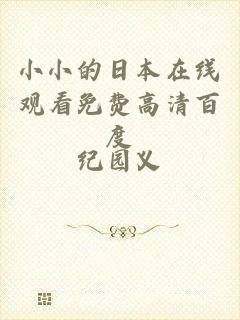 小小的日本在线
观看免费高清百
度
纪园义